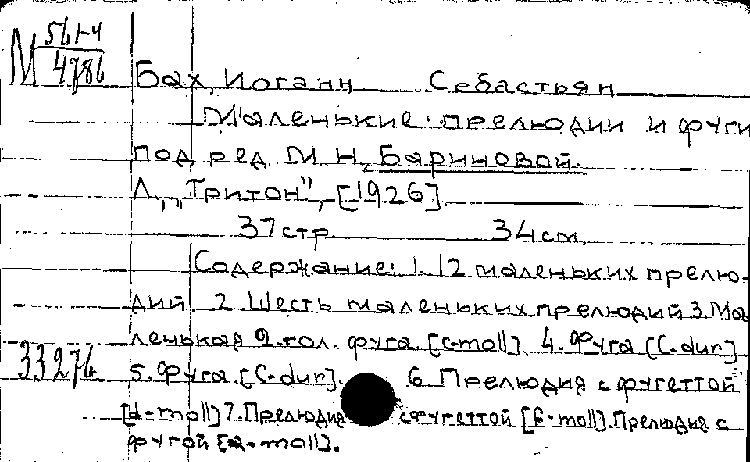 М 561-4
4786
Бах, Иоганн Себастьян
Маленькие прелюдии и фуги
под ред. М. Н. Бариновой.
Л., „Тритон", [1926]
37 стр. 34 см.
Содержание: 1. 12 маленьких прелю-
дий 2. Шесть маленьких прелюдий 3. Ма
ленькая 2. гол. фуга. [c-moll] 4. Фуга [C-dur]
33274 5. Фуга. [C-dur]. 6. Прелюдия с фугеттой
[d-moll] 7. Прелюдия с фугеттой [e-moll]. Прелюдия с
фугой [a-moll].